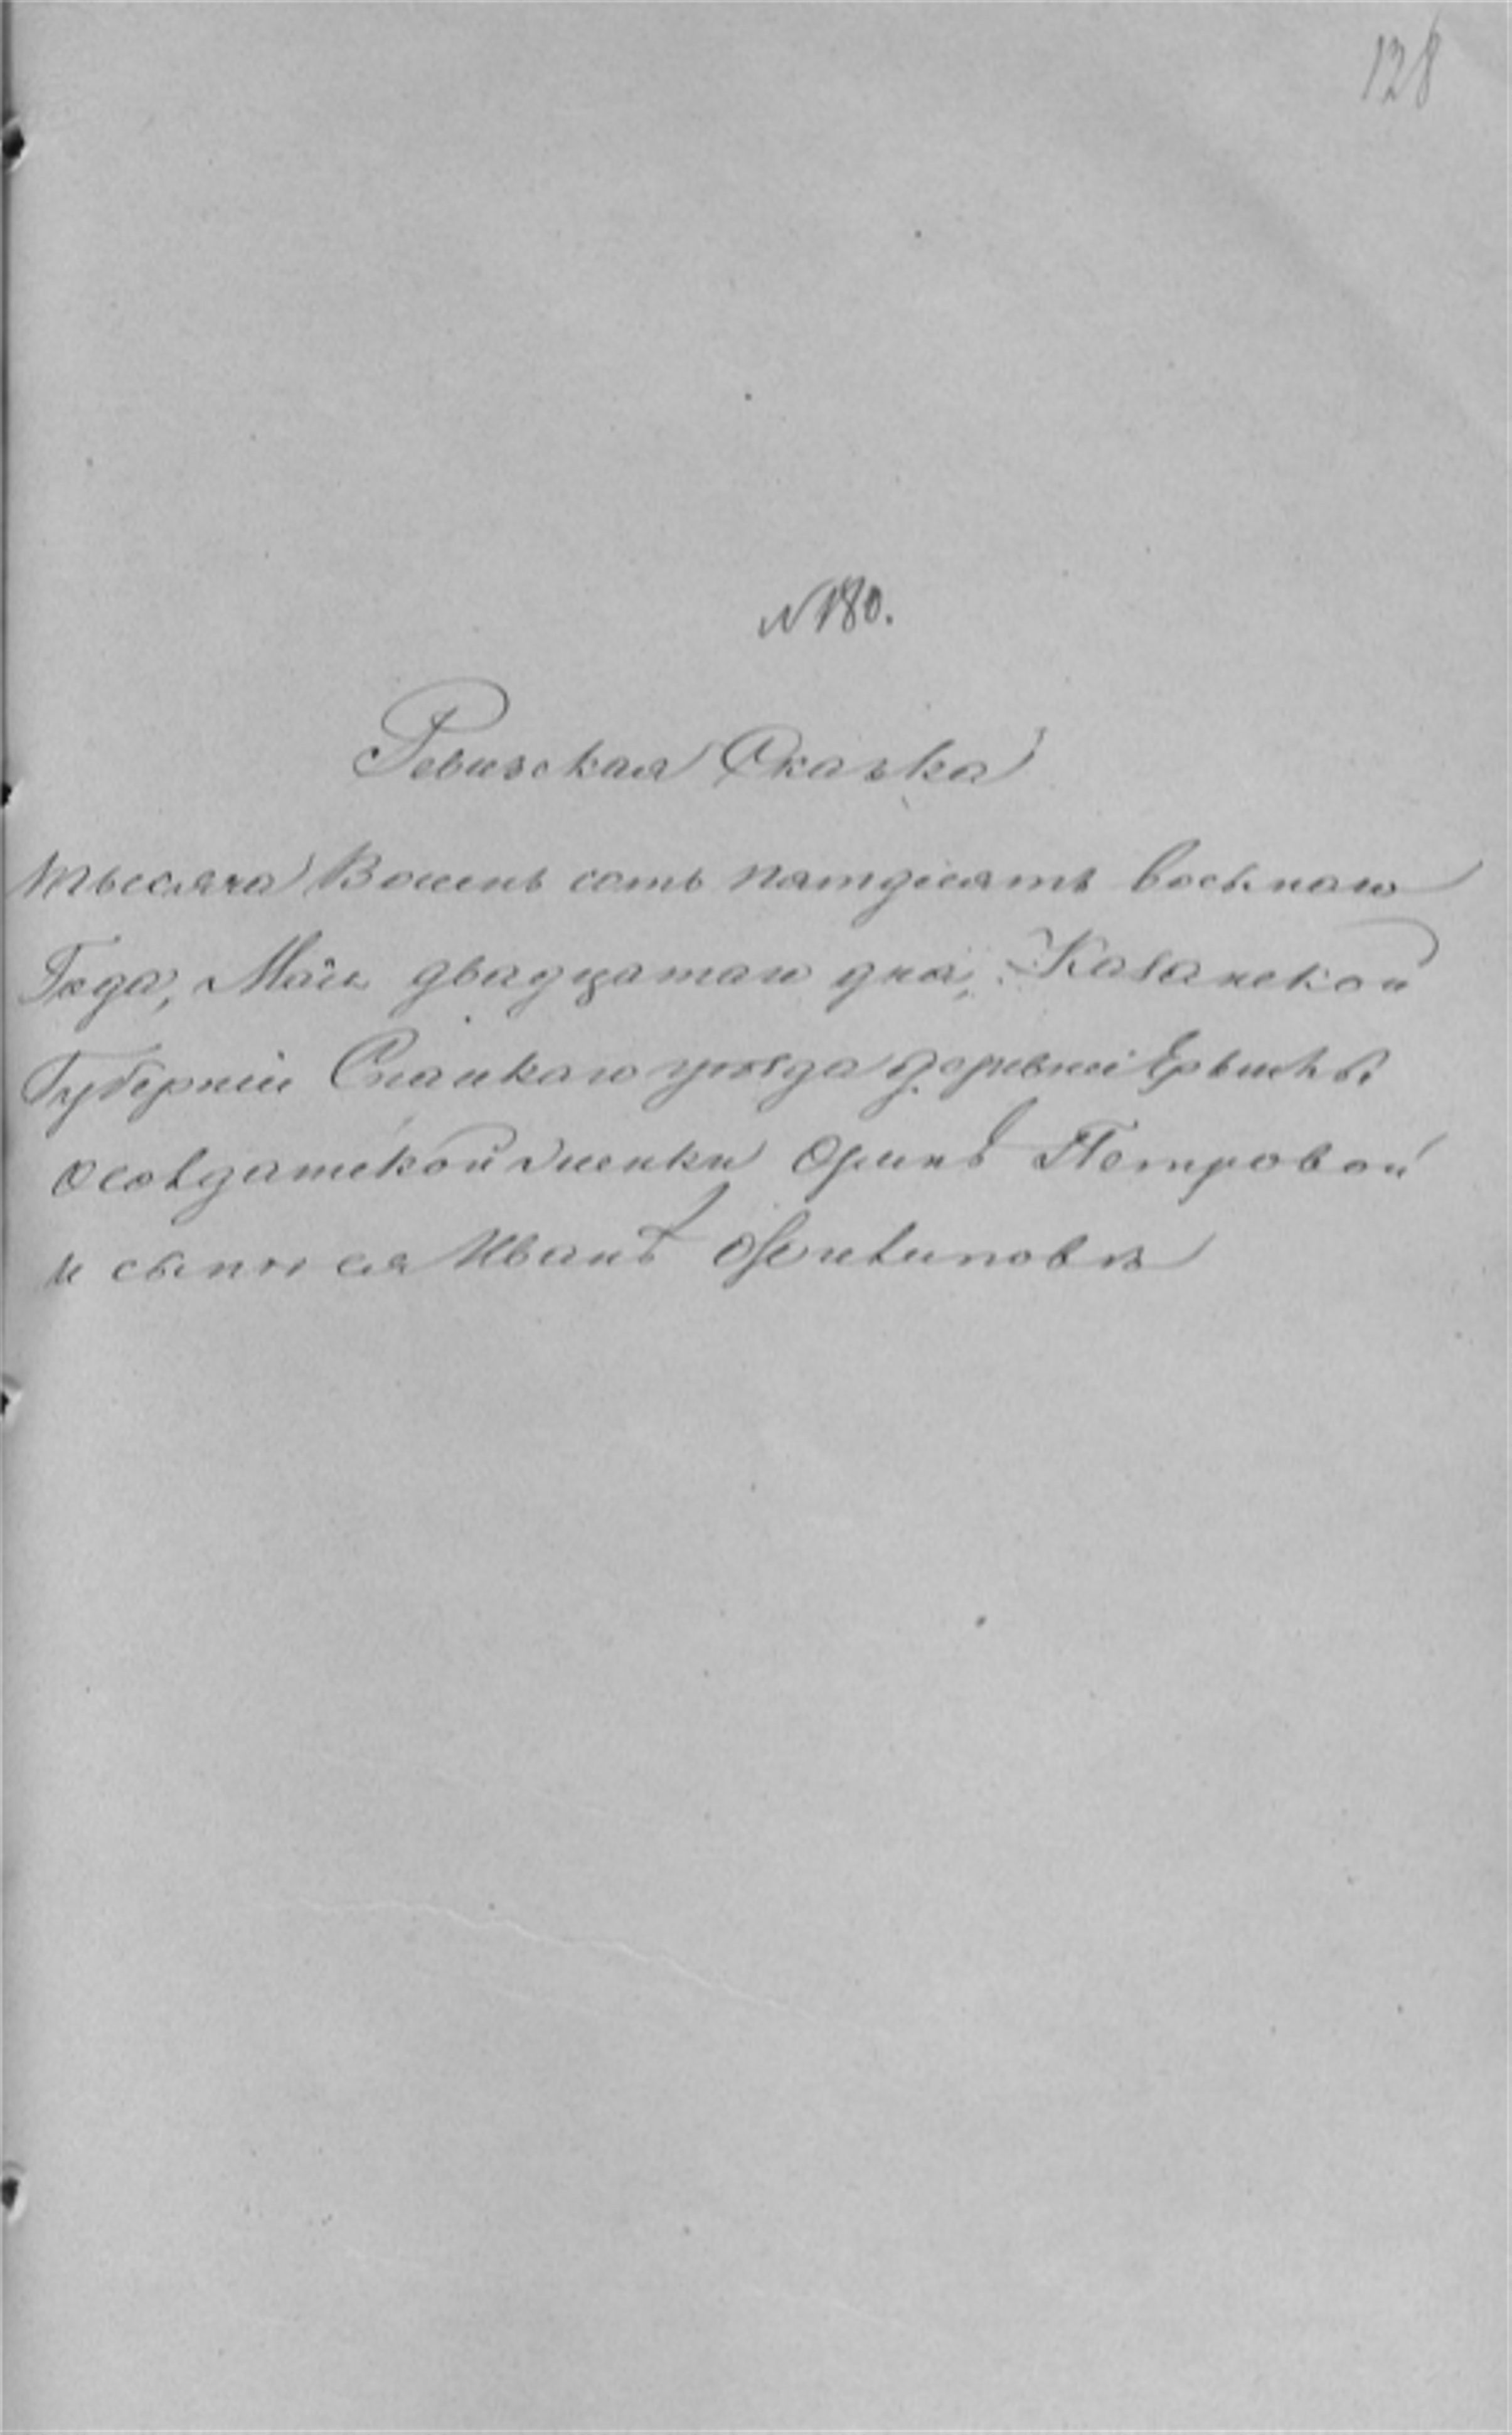 128
№ 180.
Ревизская Сказка
тысяча Восемь сотъ пятдесятъ восьмаго
Года, Маiя двадцатаго дня, Казанской
Губернiи Спаскаго уѣзда деревни
о солдатской женки Оринѣ Петровой
и сынѣ ея Иванѣ